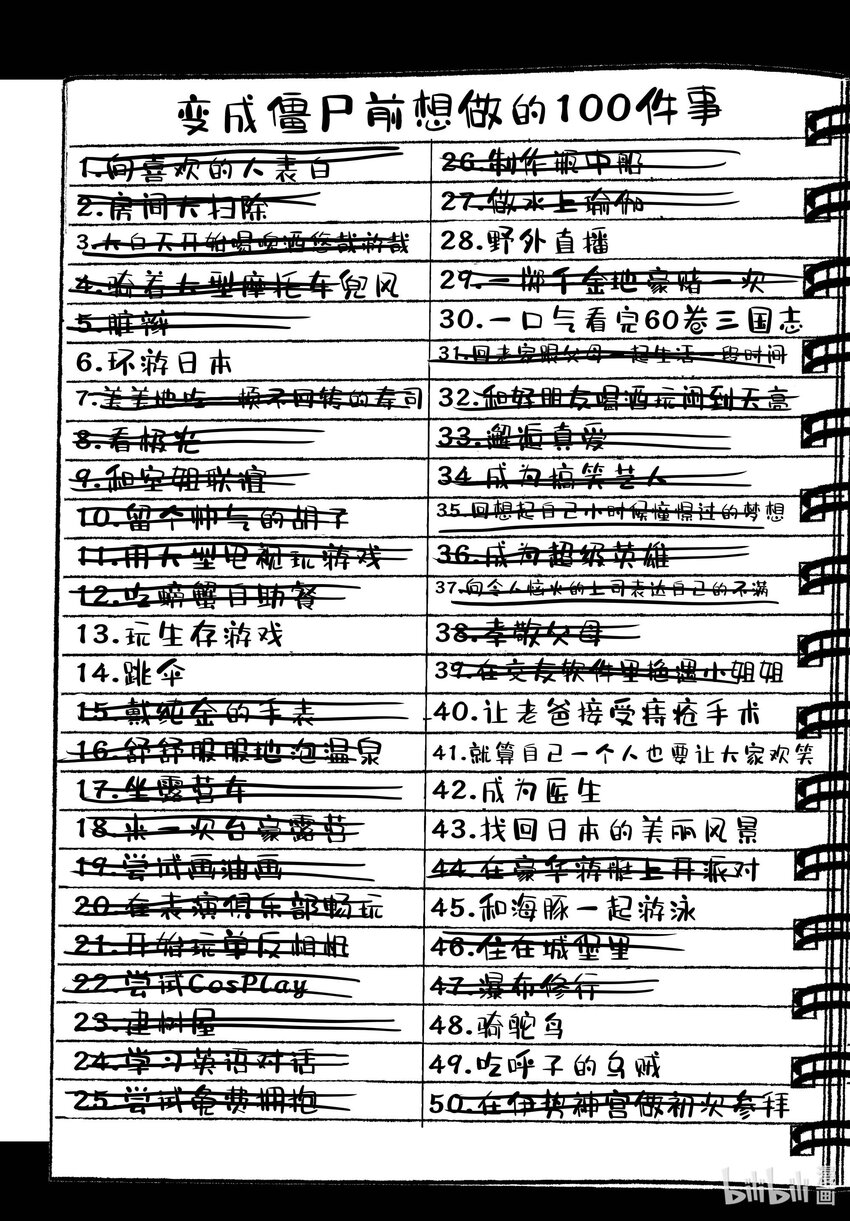 变成僵尸前想做的100件事
1.向喜欢的人表白
2.房间大扫除
3.大白天开始喝啤酒悠哉游哉
4.骑着大型摩托车兜风
5.脏辫
6.环游日本
7.美美地吃一顿不回转的寿司
8.看极光
9.和空姐联谊
10.留个帅气的胡子
11.用大型电视玩游戏
12.吃螃蟹自助餐
13.玩生存游戏
14.跳伞
15.戴纯金的手表
16.舒舒服服地泡温泉
17.坐露营车
18.来一次台豪露营
19.尝试画油画
20.在表演俱乐部畅玩
21.开始玩单反相机
22.尝试CosPlay
23.建树屋
24.学习英语对话
25.尝试免费拥抱
26.制作瓶中船
27.做水上瑜伽
28.野外直播
29.一掷千金地豪赌一次
30.一口气看完60卷三国志
31.回老家跟父母一起生活一段时间
32.和好朋友喝酒玩闹到天亮
33.邂逅真爱
34.成为搞笑艺人
35.回想起自己小时候憧憬过的梦想
36.成为超级英雄
37.向令人恼火的上司表达自己的不满
38.孝敬父母
39.在交友软件里偶遇小姐姐
40.让老爸接受痔疮手术
41.就算自己一个人也要让大家欢笑
42.成为医生
43.找回日本的美丽风景
44.在豪华游艇上开派对
45.和海豚一起游泳
46.住在城堡里
47.瀑布修行
48.骑鸵鸟
49.吃呼子的乌贼
50.在伊势神宫做初次参拜
bilibili漫画